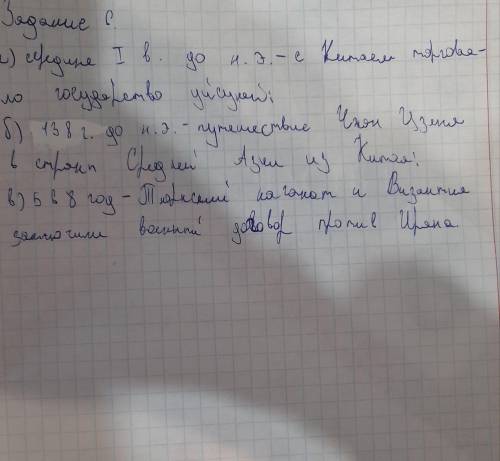 Задание С.
а) середине I в. до н.э. – с Китаем торгова-
ло государство уйсуней;
б) 138 г. до н.э. – путешествие Чжан Цзеня
в страны Средней Азии из Китая;
в) 5 в 8 год – Тюркский каганат и Византия
заключили военный договор против Ирана